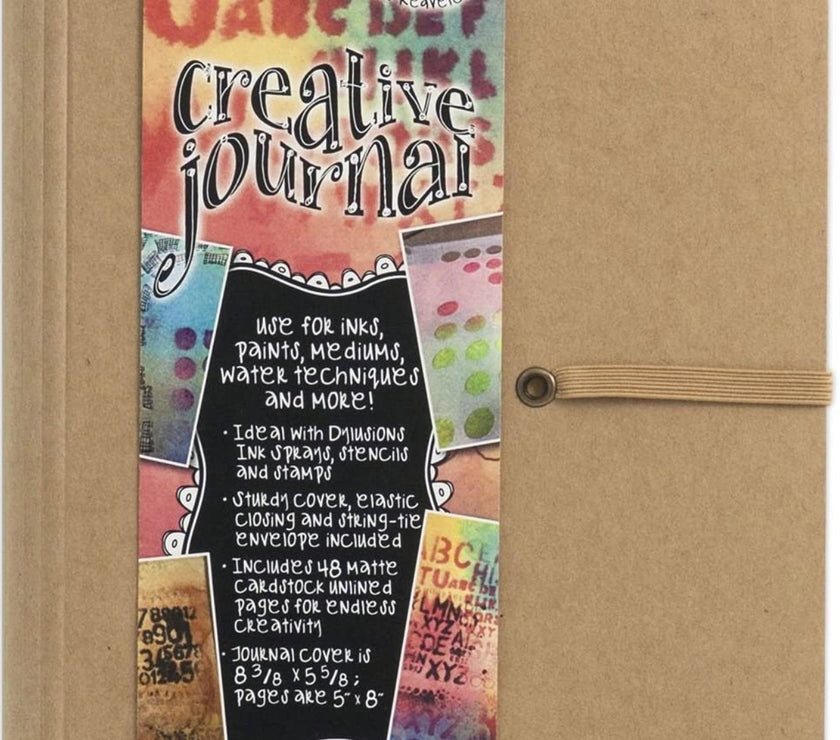 creative
journal
Use for inks,
paints, mediums,
water techniques
and more!
· Ideal with Dylusions
Ink Sprays, stencils
and stamps
· Sturdy cover, elastic
closing and string-tie
envelope included
· Includes 48 matte
cardstock unlined
pages for endless
creativity
· Journal cover is
8 3/8 x 5 5/8 ;
pages are 5" x 8"